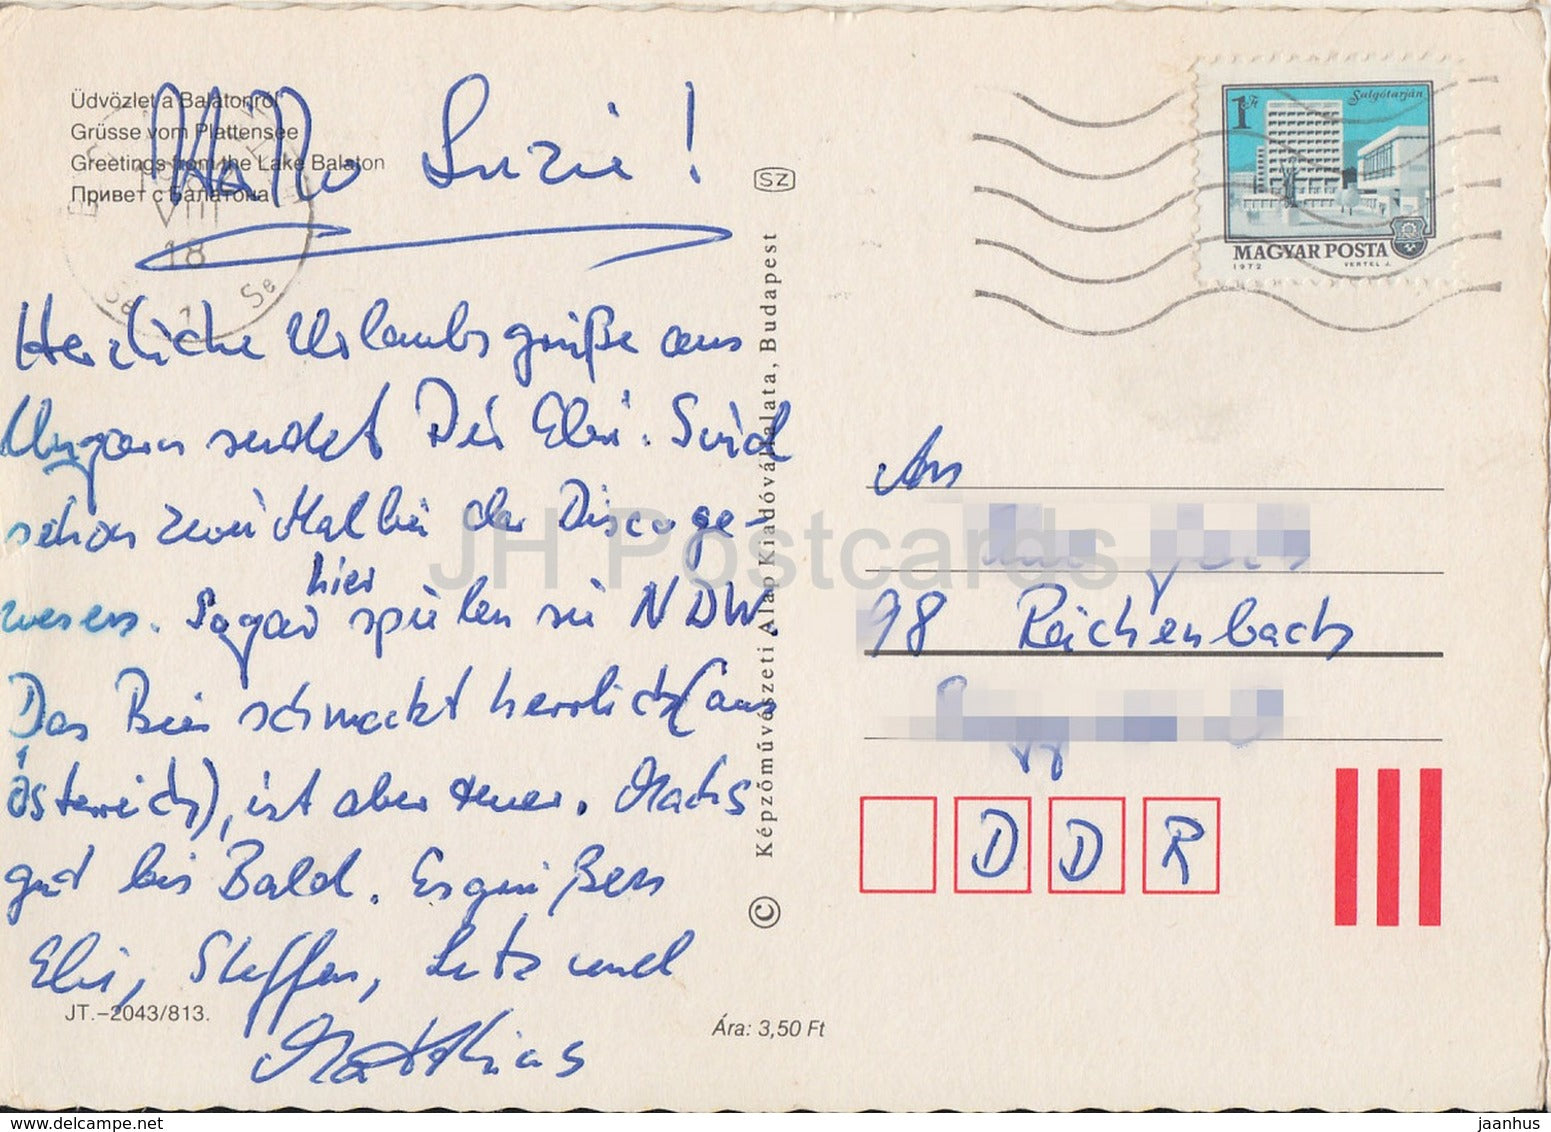 Üdvözlet a Balatonról
Grüsse vom Plattensee
Greetings from the Lake Balaton
Привет с Балатона
Hallo Suzie!
VIII
18
1
Herzliche Urlaubsgrüße aus
Ungarn sendet Dir Elvi. Sind
schon zwei Mal hier in der Disco ge-
wesen. Sogar hier spielen sie NDW.
Das Bier schmeckt herrlich (aus
Österreich), ist aber teuer. Machs
gut bis Bald. Es grüßen
Elvi, Steffen, Lutz und
Matthias
JT.-2043/813.
Ára: 3,50 Ft
SZ
© Képzőművészeti Alap Kiadóvállalata, Budapest
1 Ft
Salgótarján
MAGYAR POSTA
1972
VERTEL J.
An
98 Reichenbach
D D R
JH Postcards
delcampe.net
jaanhus